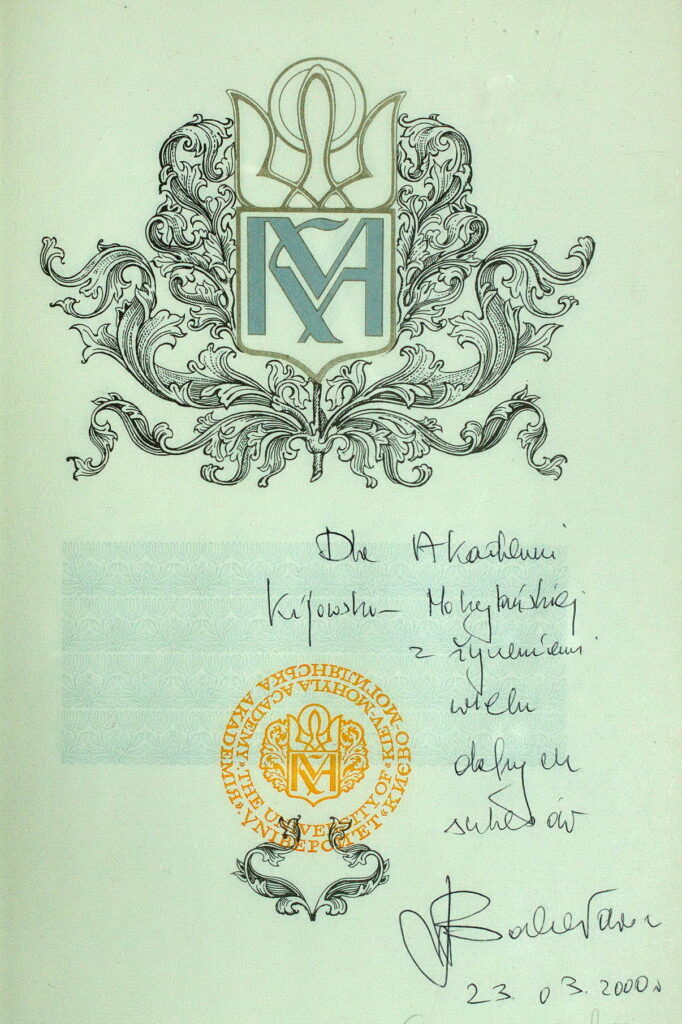 КМА
Dla Akademii
Kijowsko-Mohylańskiej
z życzeniami
wielu
dalszych
sukcesów
23.03.2000
УНІВЕРСИТЕТ «КИЄВО-МОГИЛЯНСЬКА АКАДЕМІЯ»
THE UNIVERSITY OF «KIEV-MOHYLA ACADEMY»
КМА